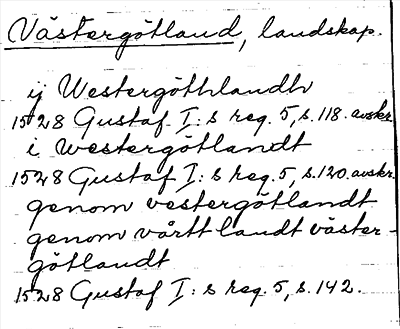 Västergötland, landskap.
ij Westergöthlandh
1528 Gustaf I:s reg. 5, s. 118. avskr.
i westergötlandt
1528 Gustaf I:s reg. 5, s. 120. avskr.
genom vestergötlandt
genom vårtt landt väster-
götlandt
1528 Gustaf I:s reg. 5, s. 142.